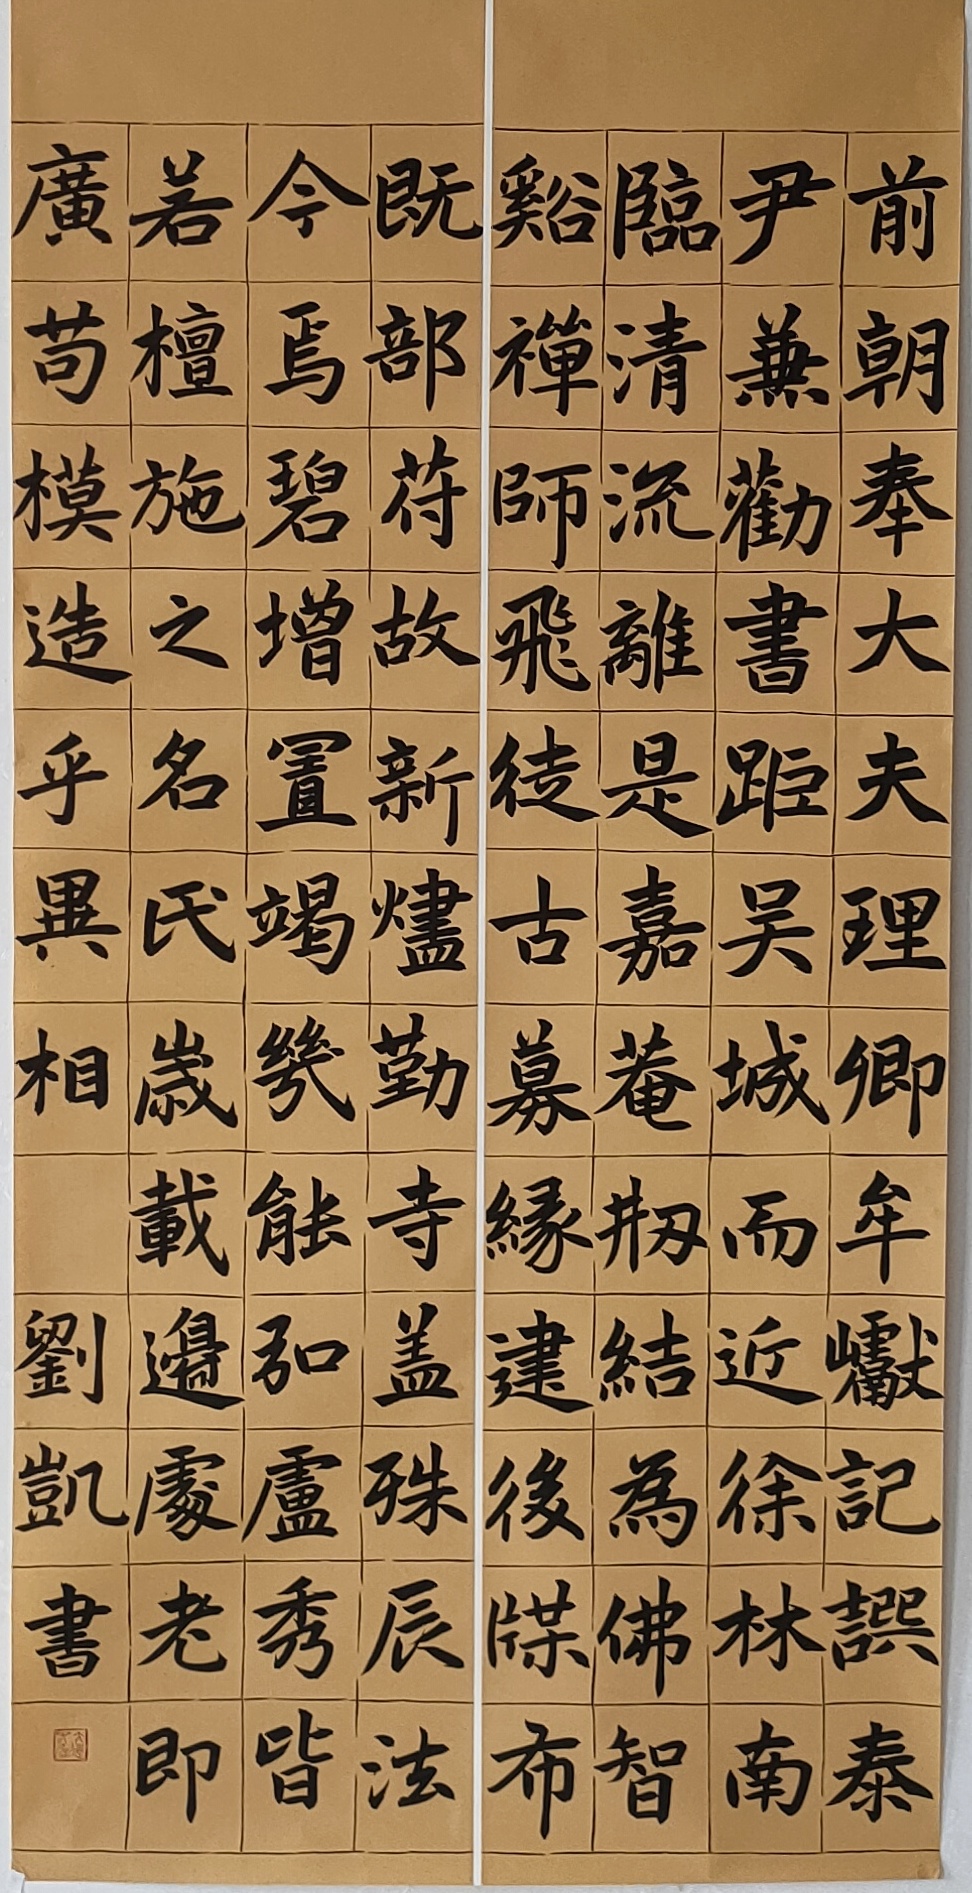 前朝奉大夫理卿牟巘記譔泰
尹兼勸書距吴城而近徐林南
臨清流離是嘉菴刱結為佛智
谿禪師飛徒古募緣建後牒布
既部苻故新燼勤寺盖殊辰法
今焉碧增置竭幾能弘盧秀皆
若檀施之名氏歲載邊處老即
廣苟模造乎異相
劉凱書